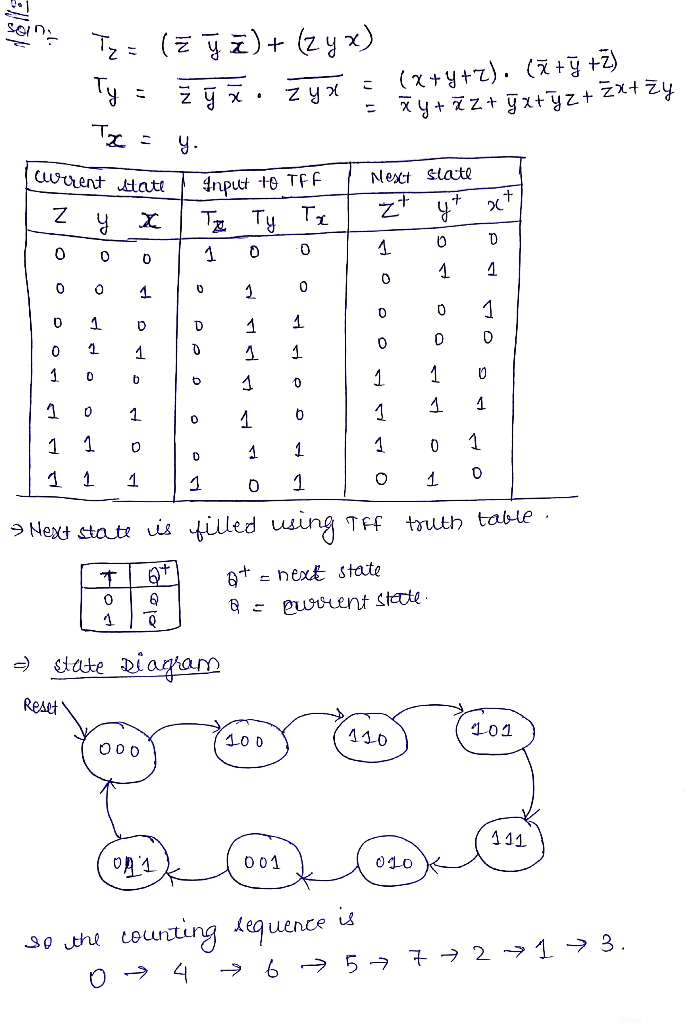 soln:-
T_z = (z̅ y̅ x̅) + (z y x)
T_y = \overline{z̅ y̅ x̅} . \overline{z y x} = (x+y+z). (x̅+y̅+z̅)
= x̅y + x̅z + y̅x + y̅z + z̅x + z̅y
T_x = y.
current state | Input to TFF | Next state
z y x | T_z T_y T_x | z⁺ y⁺ x⁺
0 0 0 | 1 0 0 | 1 0 0
0 0 1 | 0 1 0 | 0 1 1
0 1 0 | 0 1 1 | 0 0 1
0 1 1 | 0 1 1 | 0 0 0
1 0 0 | 0 1 0 | 1 1 0
1 0 1 | 0 1 0 | 1 1 1
1 1 0 | 0 1 1 | 1 0 1
1 1 1 | 1 0 1 | 0 1 0
→ Next state is filled using TFF truth table.
T | Q⁺
0 | Q
1 | Q̅
Q⁺ = next state
Q = current state.
⇒ state Diagram
Reset
000 100 110 101
011 001 010 111
so the counting sequence is
0 → 4 → 6 → 5 → 7 → 2 → 1 → 3.